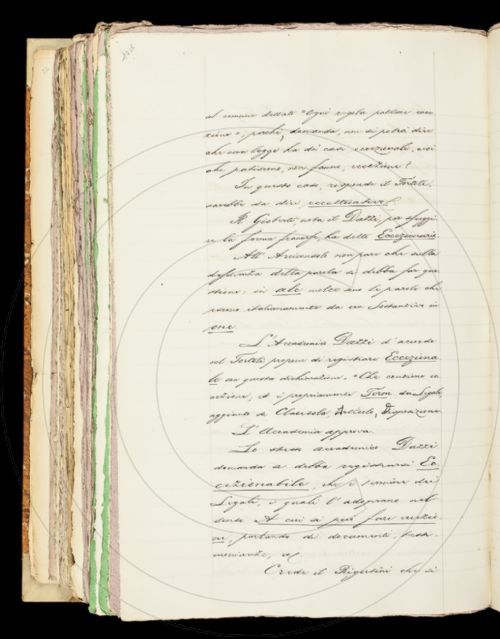 al comune dettato "Ogni regola patisce ecce
zione", perchè, domanda, non si potrà dire
che una legge ha di casi eccezionali, cioè
che patiscono, non fanno, eccezione?
In questo caso, risponde il Tortoli,
sarebbe da dire eccettuativi.
Il Gioberti, nota il Dazzi, per sfuggi
re la forma francese, ha detto Eccezionario
All' Arciconsolo non pare che sulla
desinenza della parola si debba far que
stione; in ale molte sono le parole che
vanno italianamente da un Sostantivo in
one.
L'Accademico Dazzi d'accordo
col Tortoli propone di registrare Ecceziona
le con questa dichiarazione. "Che contiene ec
cezione, ed è propriamente Term. de' Legali,
aggiunto di Clausola, Articolo, Disposizione
L'Accademia approva.
Lo stesso accademico Dazzi
domanda se debba registrarsi Ec
cezionabile, che è comune dei
Legali, i quali l'adoprano nel
senso A cui si può fare eccezio
ne, parlando di documenti, testi
monianze, ec.
Crede il Rigutini che si